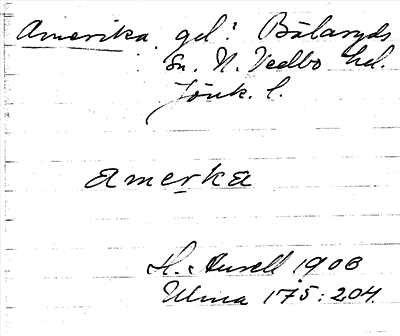 Amerika gel! Bälaryds
Sn. N. Vedbo hd.
Jönk. l.
amerka
H. Ansell 1908
Ulma 175:204.